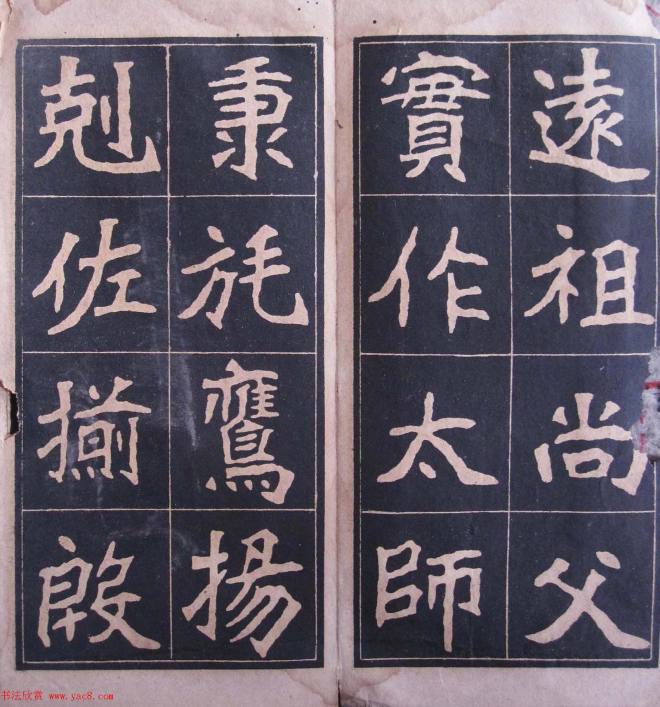 遠祖尚父
實作太師
秉旄鷹揚
剋佐揃殷
书法欣赏 www.yac8.com